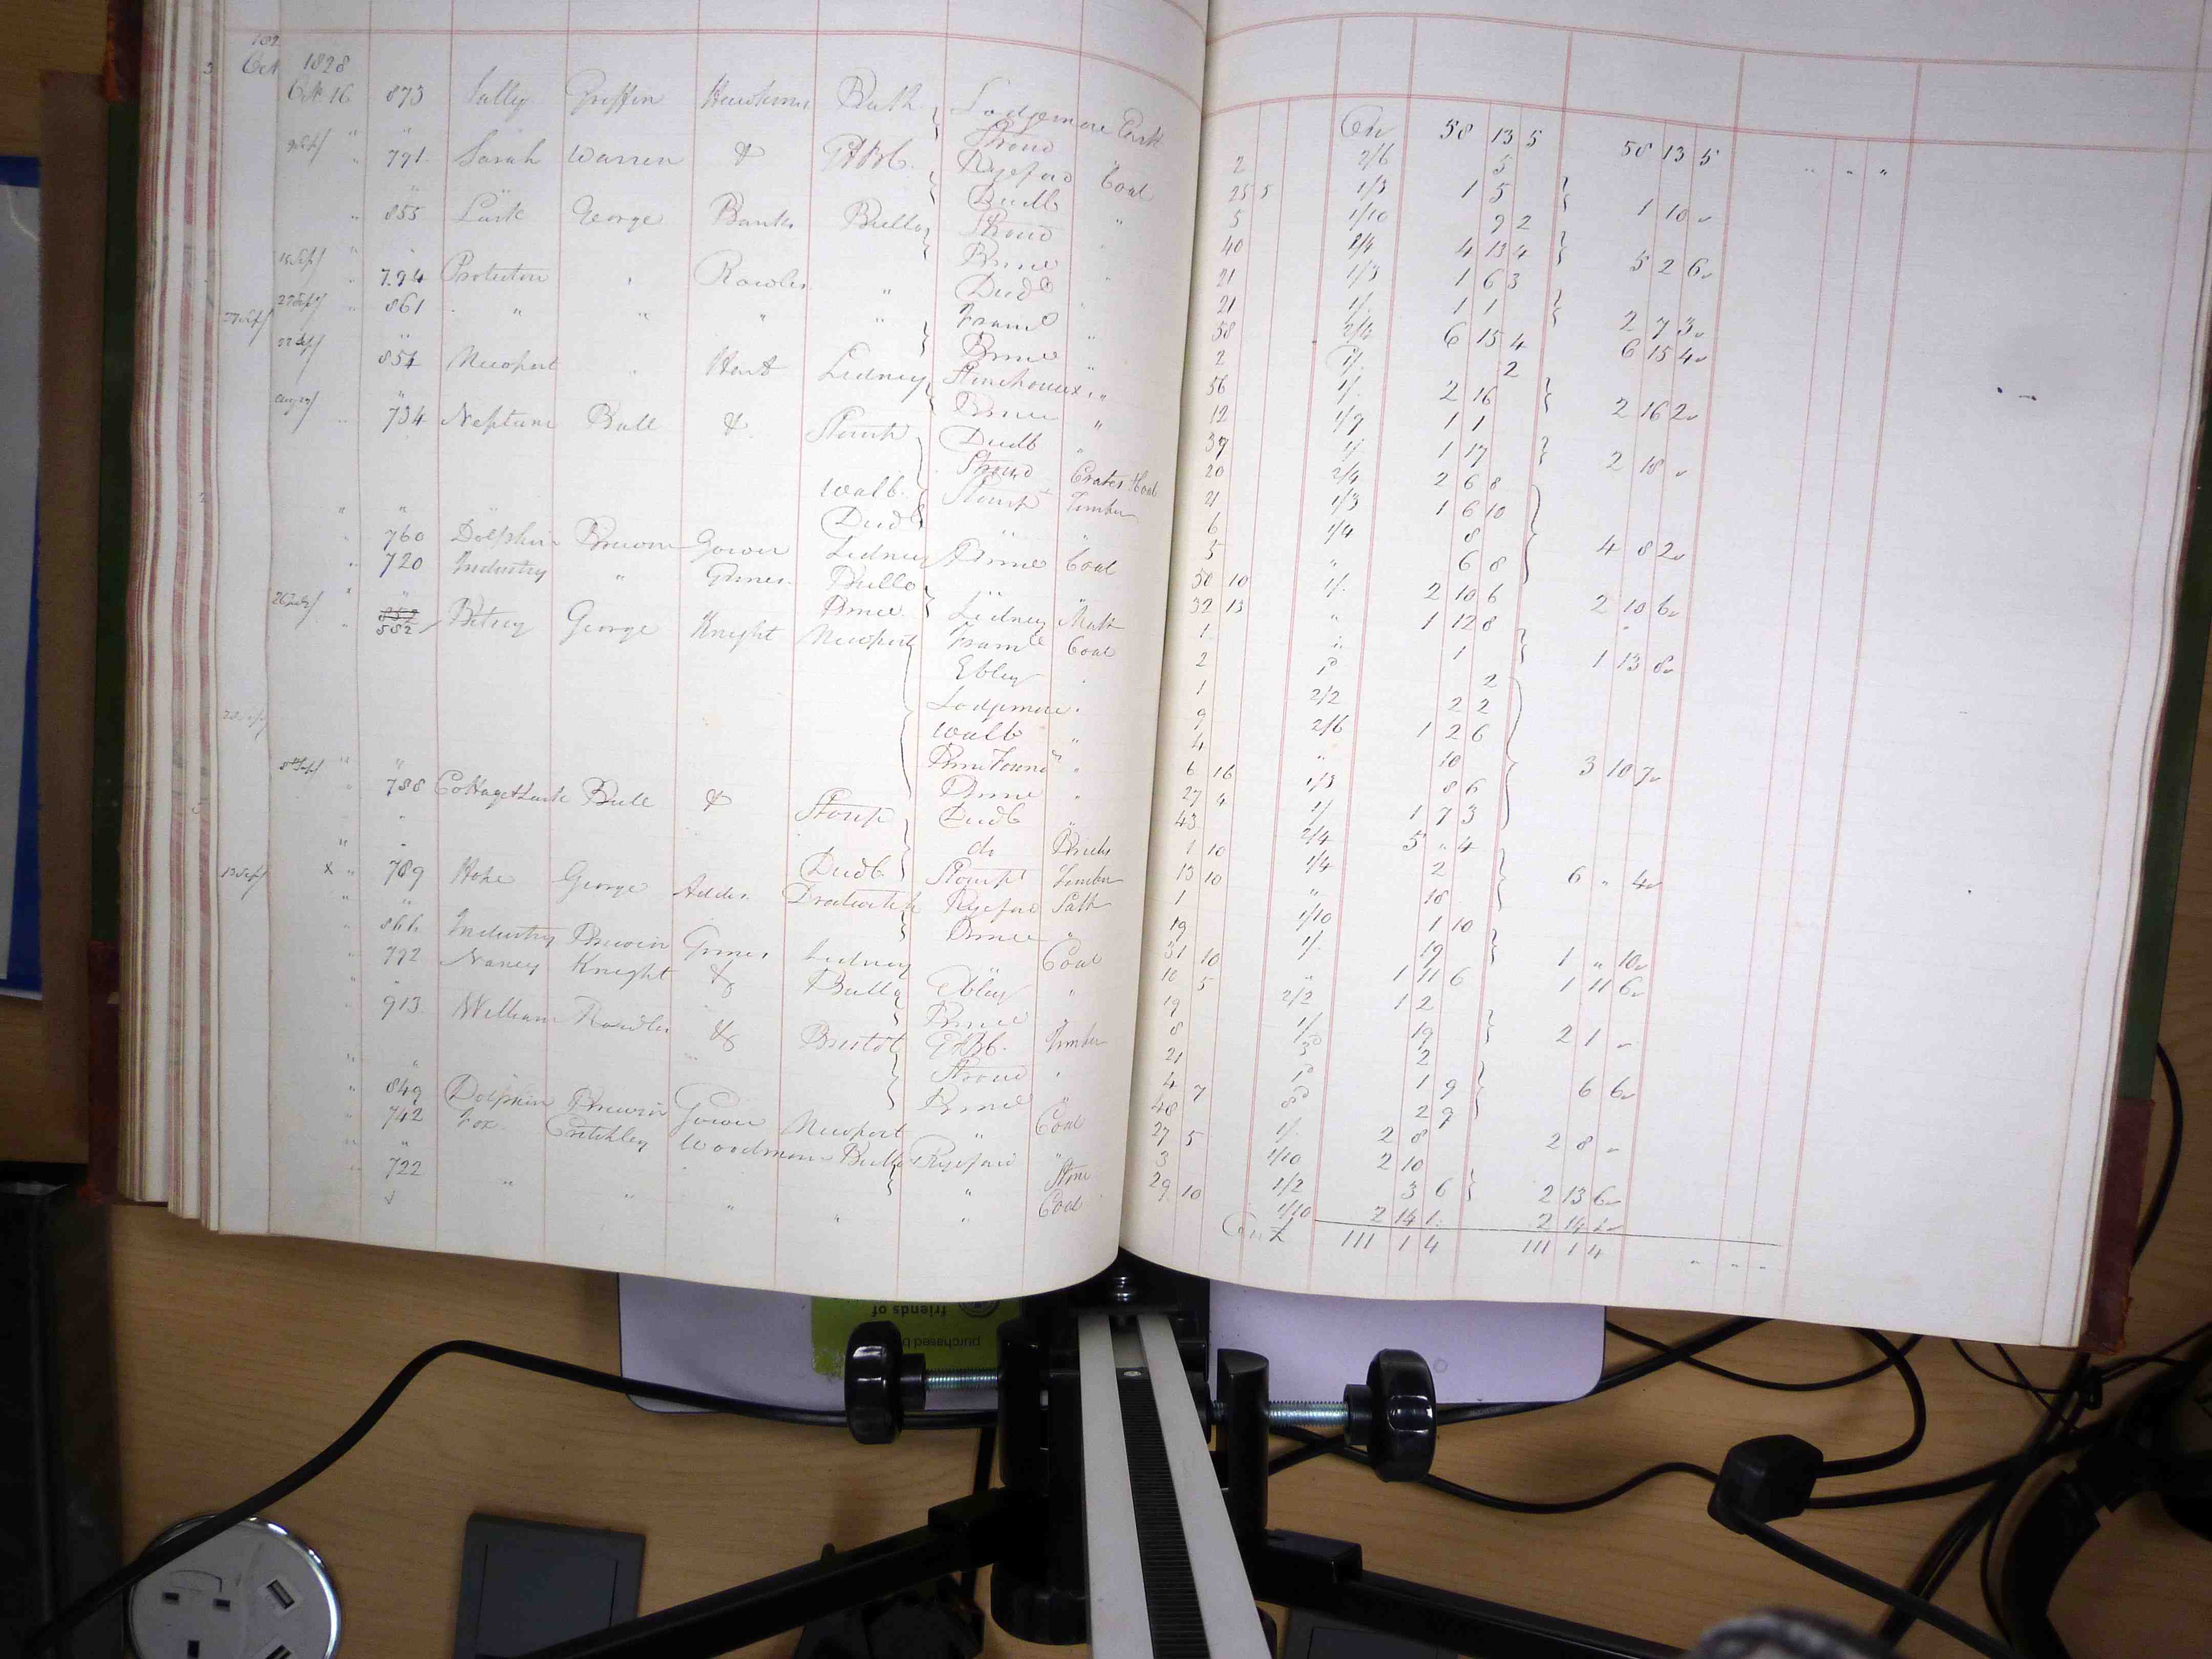 102
Oct 1828
Oct 16 873 Sally Griffin Hawkins Bath Lodgemore Cash Cr 58 13 5 58 13 5 " " "
" " Stroud 2 2/6 5
" 791 Sarah Warren & G&BC Ryeford Coal 25 5 1/3 1 5 1 10
" Dudb 5 1/10 9 2
" 855 Lark George Banks Bullo Stroud " 40 2/4 4 13 4 5 2 6
18 Sept " Brim 21 1/3 1 6 3
" 794 Protector " Rowles " Dudb " 21 1/. 1 1 2 7 3
27 Sept " 861 " " " " Framl 58 2/4 6 15 4 6 15 4
22 Sept " Brim " 2 1/. 2
854 Newport " Hart Lidney Stonehouse " 56 1/. 2 16 2 16 2
Aug Brim " 12 1/9 1 1
" 734 Neptune Bull & Stourp Dudb " 37 1/ 1 17 2 18
Stroud Crates & Coal 20 2/4 2 6 8
Walb. Stourp Timber 21 1/3 1 6 10
" " Dudb " " 6 1/4 8 4 8 2
" 760 Dolphin Brewin Gower Lidney Brim Coal 5 " 6 8
" 720 Industry " Grimes Bullo " 50 10 1/. 2 10 6 2 10 6
" " Brim Lidney Malt 32 13 " 1 12 8
" 852 582 Betsey George Knight Newport Framl Coal 1 " 1 1 13 8
Ebley " 2 1d 2
Lodgemore " 1 2/2 2 2
Walb " 9 2/6 1 2 6
4 " 10 3 10 7
" " Brim " 6 16 1/3 8 6
" 788 Cottage Lark Bull & Stourp Dudb " 27 4 1/ 1 7 3
" do Bricks 43 2/4 5 " 4
" " Dudb Stourpt Timber 1 10 1/4 2 6 " 4
13 Sept x " 789 Hope George Droitwich Ryeford Salt 13 10 " 18
" " Brim " 1 1/10 1 10
" 866 Industry Brewin Grimes Lidney " Coal 19 1/. 19 1 " 10
" 792 Nancy Knight & Bullo Ebley " 31 10 " 1 11 6 1 11 6
" " Brim " 10 5 2/2 1 2
" 913 William Rowles & Bristol G&BC. Timber 19 1/ 19 2 1
Stroud " 8 3d 2
" " Brim " 21 1d 1 9 6 6
" 849 Dolphin Brewin Gower Newport " Coal 4 7 8d 2 9
" 742 Fox Critchley Woodman Bullo Ryeford " 48 1/. 2 8 2 8
" " Stone 27 5 1/10 2 10
" 722 " " " " " Coal 3 1/2 3 6 2 13 6
29 10 1/10 2 14 1 2 14 1
111 1 4 111 1 4 " " "
friends of